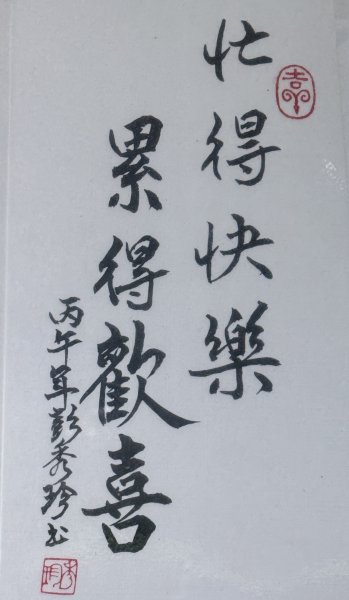 忙得快樂
累得歡喜
丙午年彭秀珍书